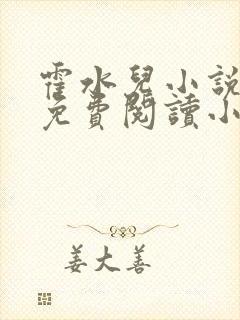 霍水兒小說
免費閱讀小
姜大善